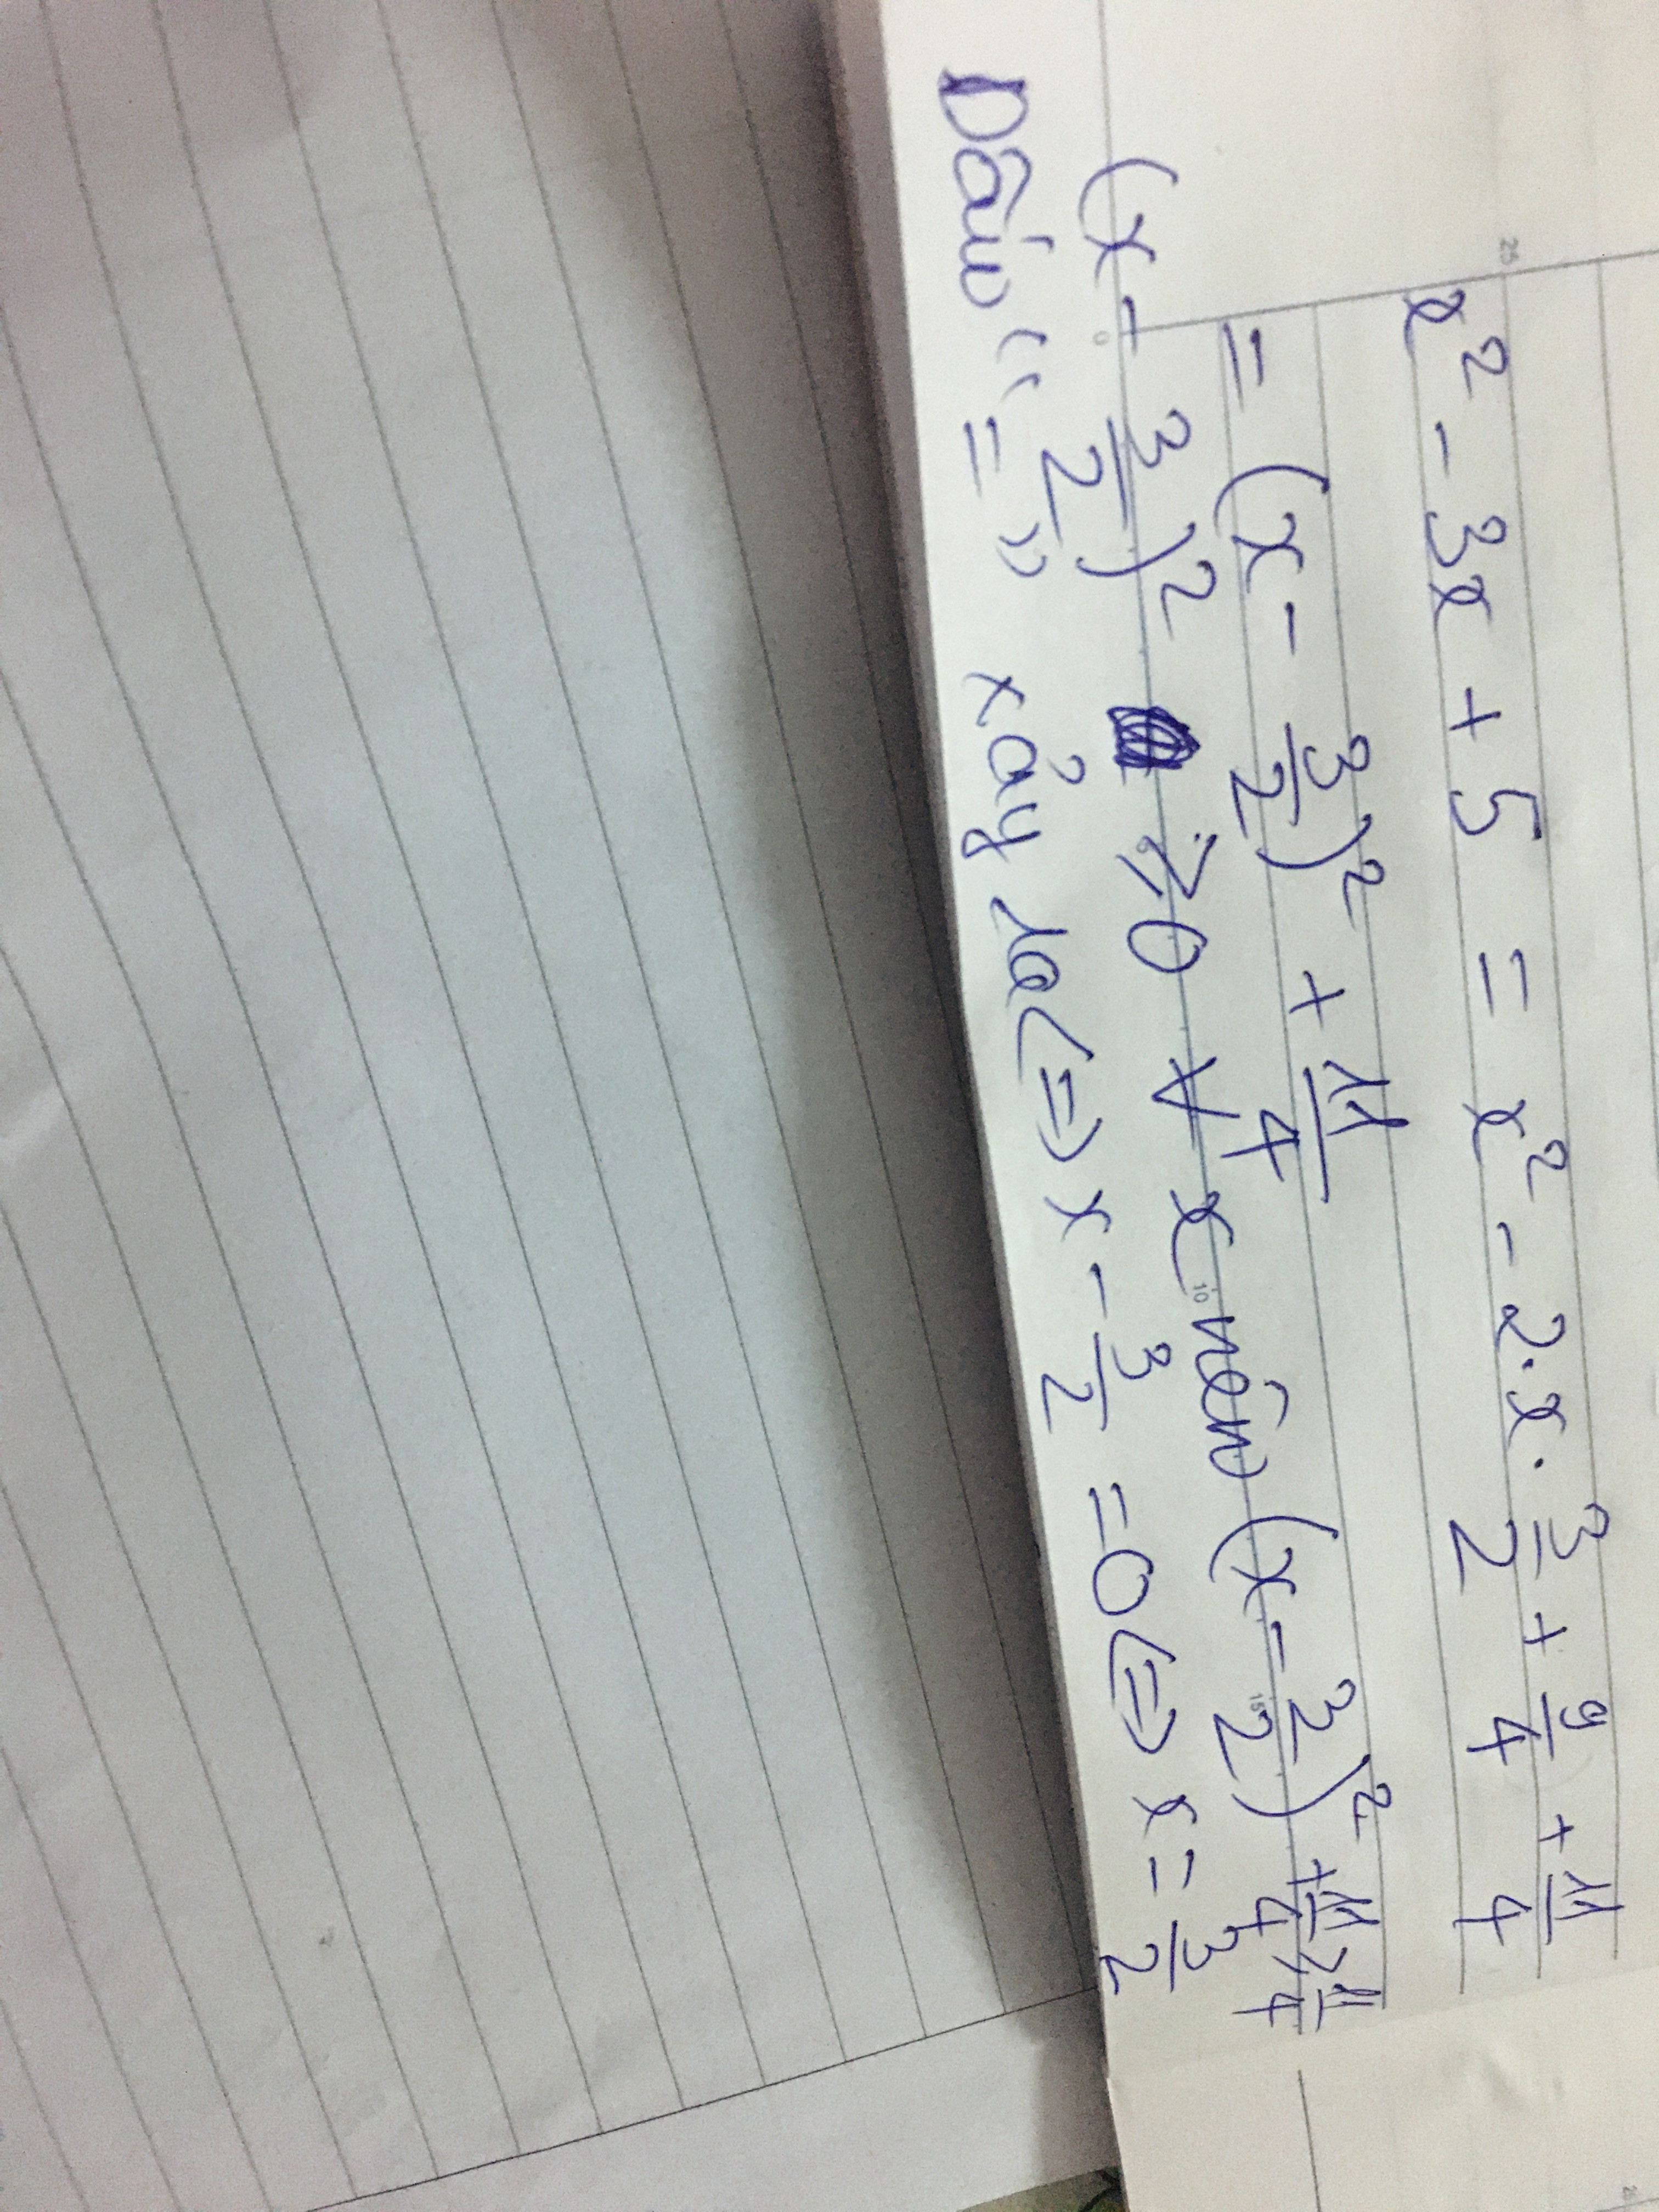 x² - 3x + 5 = x² - 2.x.3/2 + 9/4 + 11/4
= (x - 3/2)² + 11/4
(x - 3/2)² ≥ 0 ∀ x nên (x - 3/2)² + 11/4 ≥ 11/4
Dấu "=" xảy ra <=> x - 3/2 = 0 <=> x = 3/2
25
0
10
15